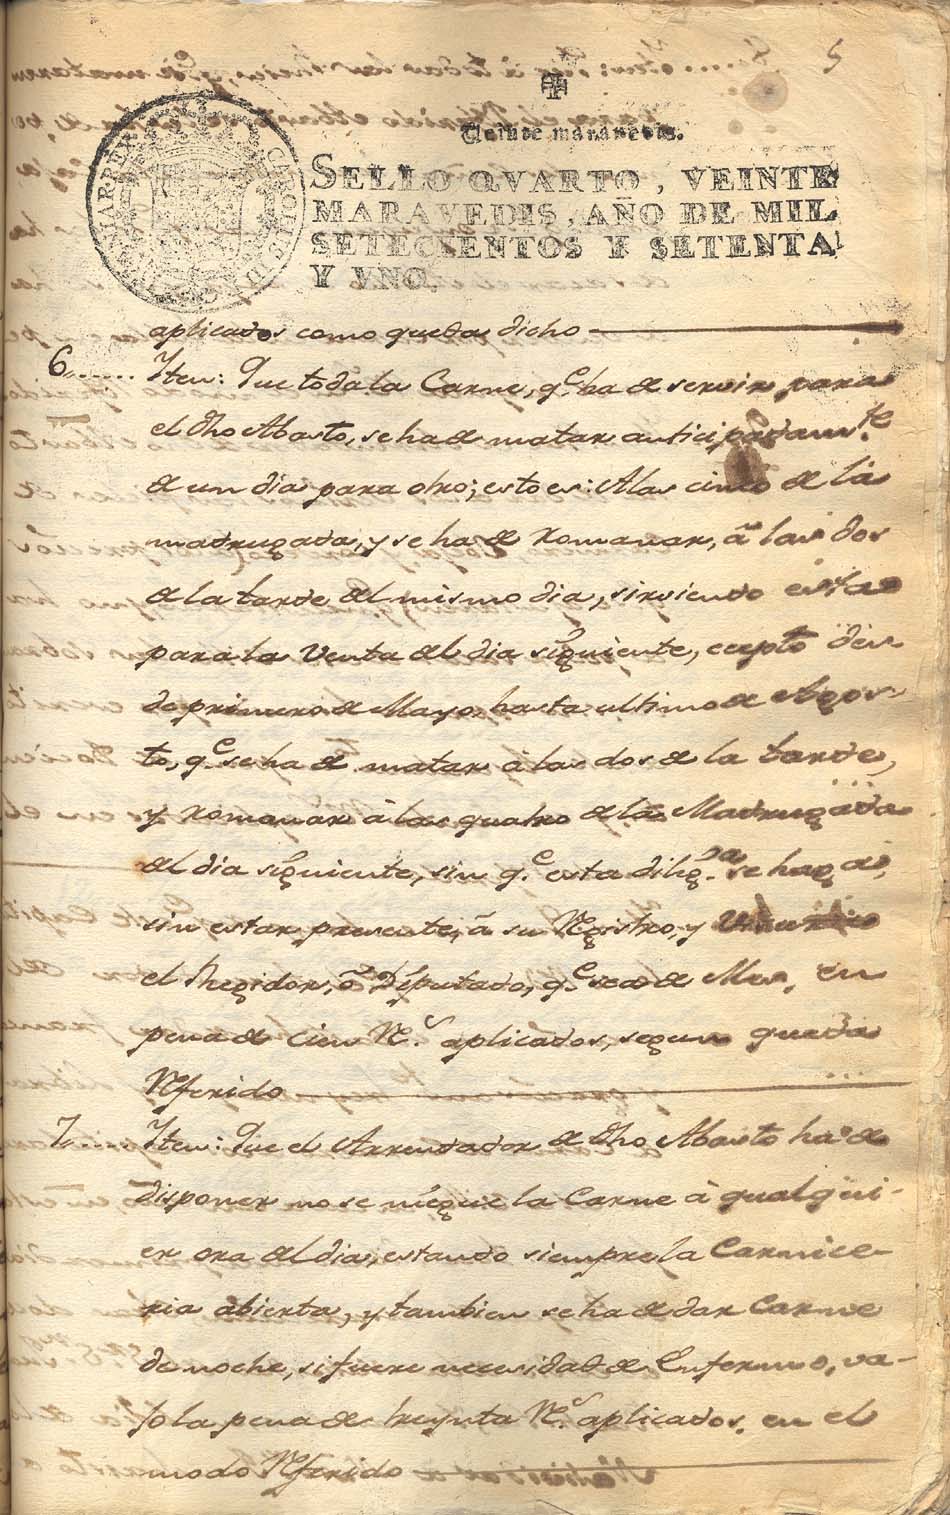 5
Veinte maravedis.
SELLO QVARTO, VEINTE
MARAVEDIS, AÑO DE MIL
SETECIENTOS Y SETENTA
Y VNO.
CAROLUS
aplicados como queda dicho
6...... Iten: Que toda la Carne, q.e ha de servir para
el dho Abasto, se ha de matar anticipadam.te
de un dia para otro; esto es: A las cinco de la
madrugada, y se ha de Romanar, â las dos
de la tarde del mismo dia, sirviendo esta
para la Venta del dia siguiente, ecepto des-
de primero de Mayo, hasta ultimo de Agos-
to, q.e se ha de matar à las dos de la tarde,
y Romanar à las quatro de la Madrugada
del dia siguiente, sin q.e esta dilig.a se haga,
sin estar presente, â su Registro, y
el Regidor, ô Diputado, q.e sea de Mes, en
pena de cien R.s aplicados, segun queda
Referido
7.... Iten: Que el Arrendador de dho Abasto ha de
disponer no se niegue la Carne à qualqui-
er ora del dia, estando siempre la Carnice-
ria abierta, y tambien se ha de dar Carne
de noche, si fuere necesidad de Enfermo, va-
jo la pena de treynta R.s aplicados, en el
modo Referido